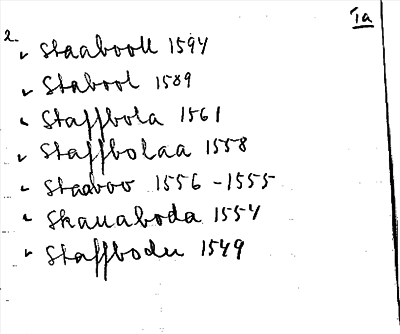 Ta
2.
Staabooll 1594
Stabool 1589
Staffbola 1561
Staffbolaa 1558
Staaboo 1556 - 1555
Skauaboda 1554
Staffbodu 1549